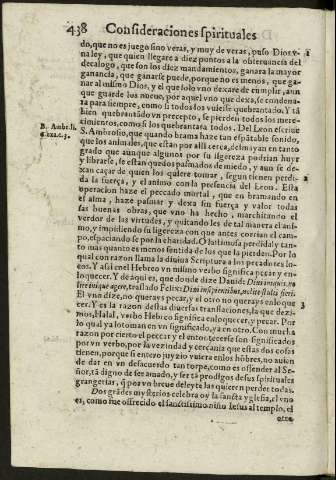 438 Consideraciones spirituales
do, que no es juego sino veras, y muy de veras, puso Dios
na ley, que quien llegare a diez puntos a la obseruancia del
decalogo, que son los diez mandamientos, ganara la mayor
ganancia, que ganarse puede, porque no es menos, que ga-
nar al mismo Dios, y el que solo vno dexare de cumplir, aun
que guarde los nueue, por aquel vno que dexa, se condena-
ra para siempre, como si todos los vuiesse quebrantado. Y tã
bien quebrantado vn precepto, se pierden todos los mere-
cimientos, como si los quebrantasse todos. Del Leon escriue
S. Ambrosio, que quando brama haze tan espãtable sonido,
B. Ambr. li.
que los animales, que estan por alli cerca, desmayan en tanto
grado que aunque algunos por su ligereza podrian huyr
y librarse, se estan quedos pasmados de miedo, y aun se de-
xan caçar de quien los quiere tomar, segun tienen perdi-
da la fuerça, y el animo con la presencia del Leon. Esta
operacion haze el peccado mortal, que en bramando en
el alma, haze pasmar y dexa sin fuerça y valor todas
las buenas obras, que vno ha hecho, marchitando el
verdor de las virtudes, y quitando les de tal manera el ani-
mo, y impidiendo su ligereza con que antes corrian el cam-
po, espaciando se por la charidad. O lastimosa perdida! y tan-
to mas quanto es menos sentida de los que la pierden. Por lo
qual con razon llama la diuina Scriptura a los peccadores lo-
cos. Y assi en el Hebreo vn mismo verbo significa pecar y en-
loquecer. Y de aqui es, que donde dize Dauid: Dixi iniquis, no
lite inique agere, traslado Felix: Dixi insipientibus, nolite stulta facere.
El vno dize, no querays pecar, y el otro no querays enloque
3
cer. Y es la razon destas diuersas translaciones, la que dezi-
mos, Halal, verbo Hebreo significa enloquecer, y pecar. Por
lo qual ya lo toman en vn significado, ya en otro. Con mucha
razon por cierto el peccar y el entontecerse son significados
por vn verbo, por la vezindad y cercania que estas dos cosas
tienen, porque si entero juyzio vuiera en los hõbres, no auien
de dar en vn desacuerdo tan torpe, como es offender al Se-
ñor, tã digno de ser amado, y ser tã prodigos de sus spirituales
grangerias, q̃ por vn breue deleyte las quieren perder todas.
Dos grãdes mysterios celebra oy la sancta yglesia, el vno
es, como fue offrecido el sanctissimo niño Iesus al templo, el
otro